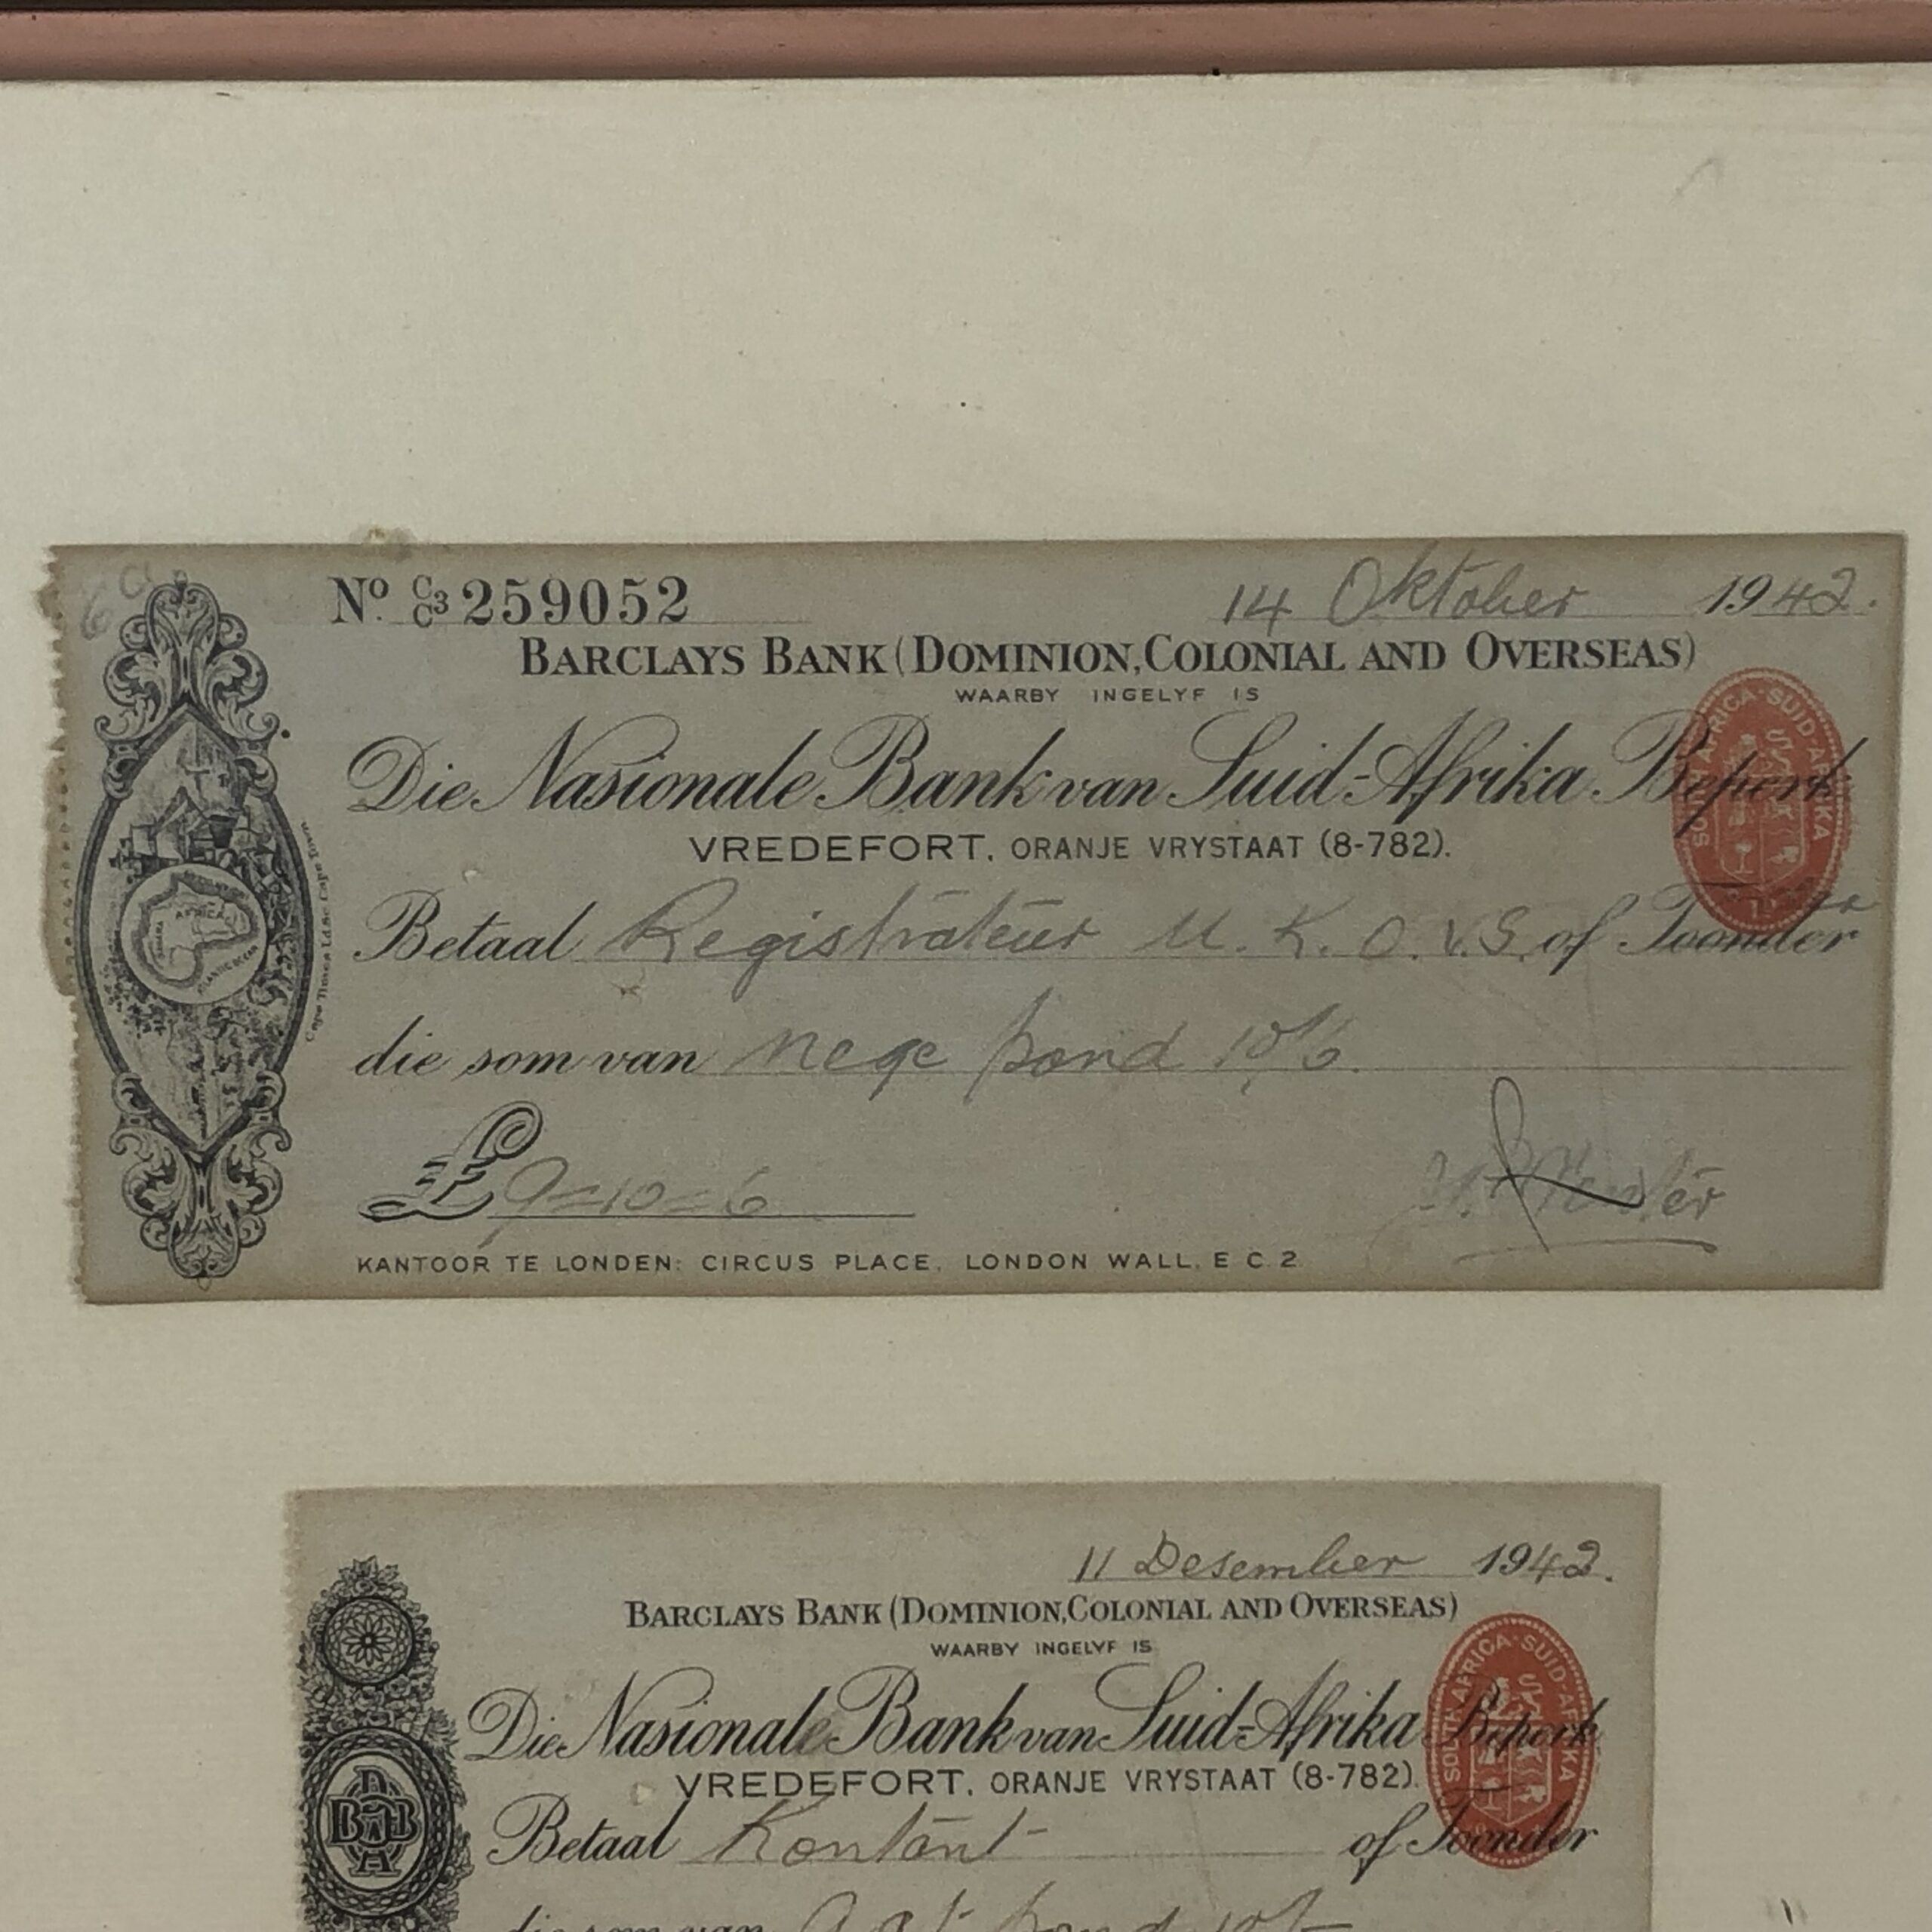 No. C/C3 259052
14 Oktober 1942.
BARCLAYS BANK (DOMINION, COLONIAL AND OVERSEAS)
WAARBY INGELYF IS
Die Nasionale Bank van Suid-Afrika Beperk
SOUTH AFRICA · SUID-AFRIKA
VREDEFORT, ORANJE VRYSTAAT (8-782).
Betaal Registrateur U. K. O. V. S. of Toonder
AFRICA
ATLANTIC OCEAN
Cape Times Ltd Sc Cape Town
die som van nege pond 10/6.
£ 9=10=6
KANTOOR TE LONDEN: CIRCUS PLACE, LONDON WALL, E C 2
11 Desember 1942.
BARCLAYS BANK (DOMINION, COLONIAL AND OVERSEAS)
WAARBY INGELYF IS
Die Nasionale Bank van Suid-Afrika Beperk
SOUTH AFRICA · SUID-AFRIKA
VREDEFORT, ORANJE VRYSTAAT (8-782).
Betaal Kontant of Toonder
die som van Agt pond 10/-